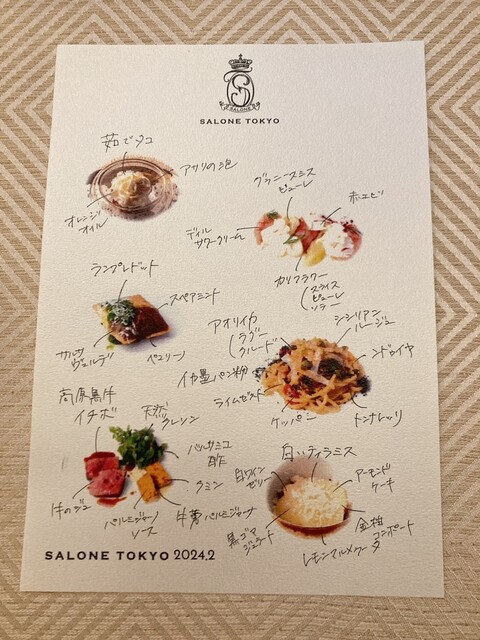 SALONE
SALONE TOKYO
茹でタコ
アサリの泡
オレンジ
オイル
グラニースミス
ピューレ
赤エビ
ディル
サワークリーム
カリフラワー
スライス
ピューレ
ランプレドット
スペアミント
サルサ
ヴェルデ
ペコリーノ
アオリイカ
ラグー
クルード
シシリアン
ルージュ
ンドゥイヤ
イカ墨パン粉
ライムゼスト
ケッパー
トンナレッリ
高原黒牛
イチボ
天然
クレソン
バルサミコ
酢
クミン
牛のジュ
パルミジャーノ
ソース
牛蒡パルミジャーナ
白いティラミス
白ワイン
ゼリー
アーモンド
ケーキ
黒ゴマ
ジェラート
金柑
コンポート
レモンマルメラータ
SALONE TOKYO 2024.2